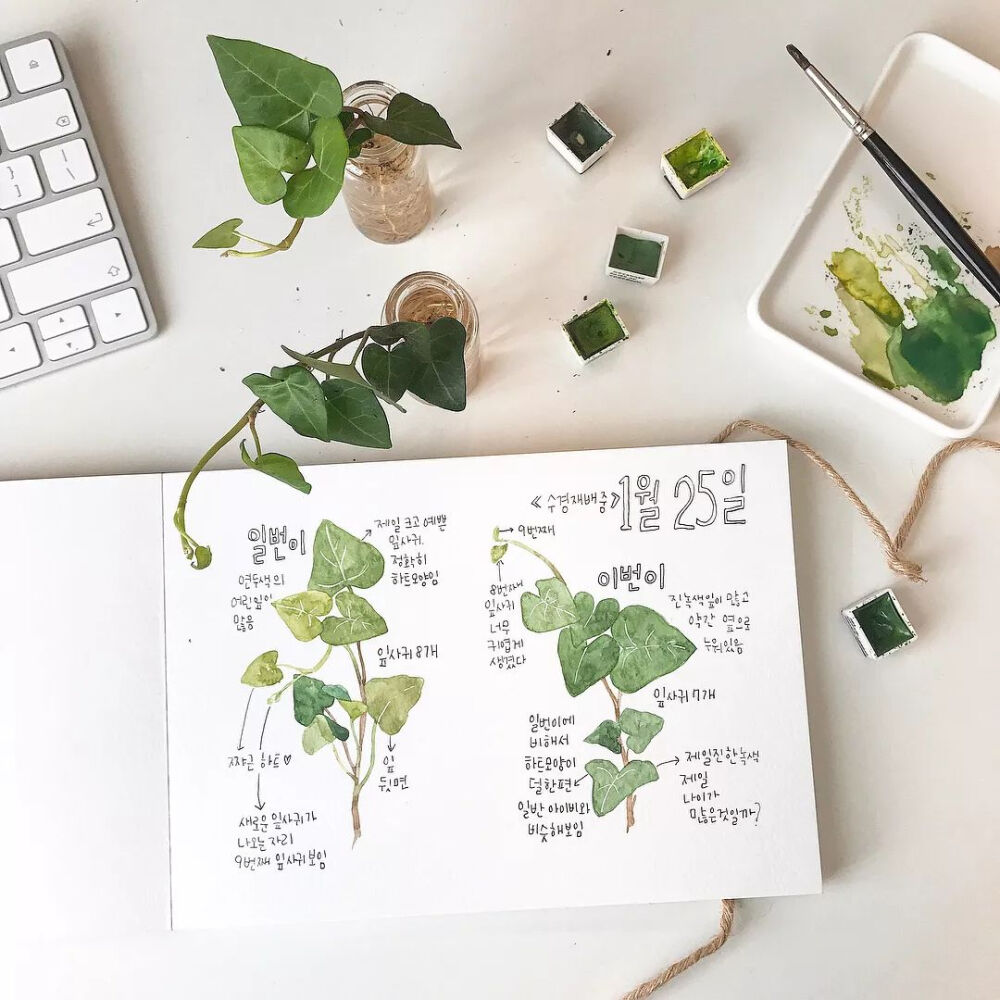 《수경재배중》1월 25일
일번이
제일 크고 예쁜
잎사귀.
정확히
하트모양임
연두색의
어린잎이
많음
잎사귀 8개
쪼꼬만 하트♡
잎
뒷면
새로운 잎사귀가
나오는 자리
9번째 잎사귀 보임
9번째
8번째
잎사귀
너무
귀엽게
생겼다
이번이
진녹색잎이 많고
약간 옆으로
누워있음
잎사귀 7개
일번이에
비해서
하트모양이
덜한편
일반 아이비와
비슷해보임
제일진한녹색
제일
나이가
많은것일까?